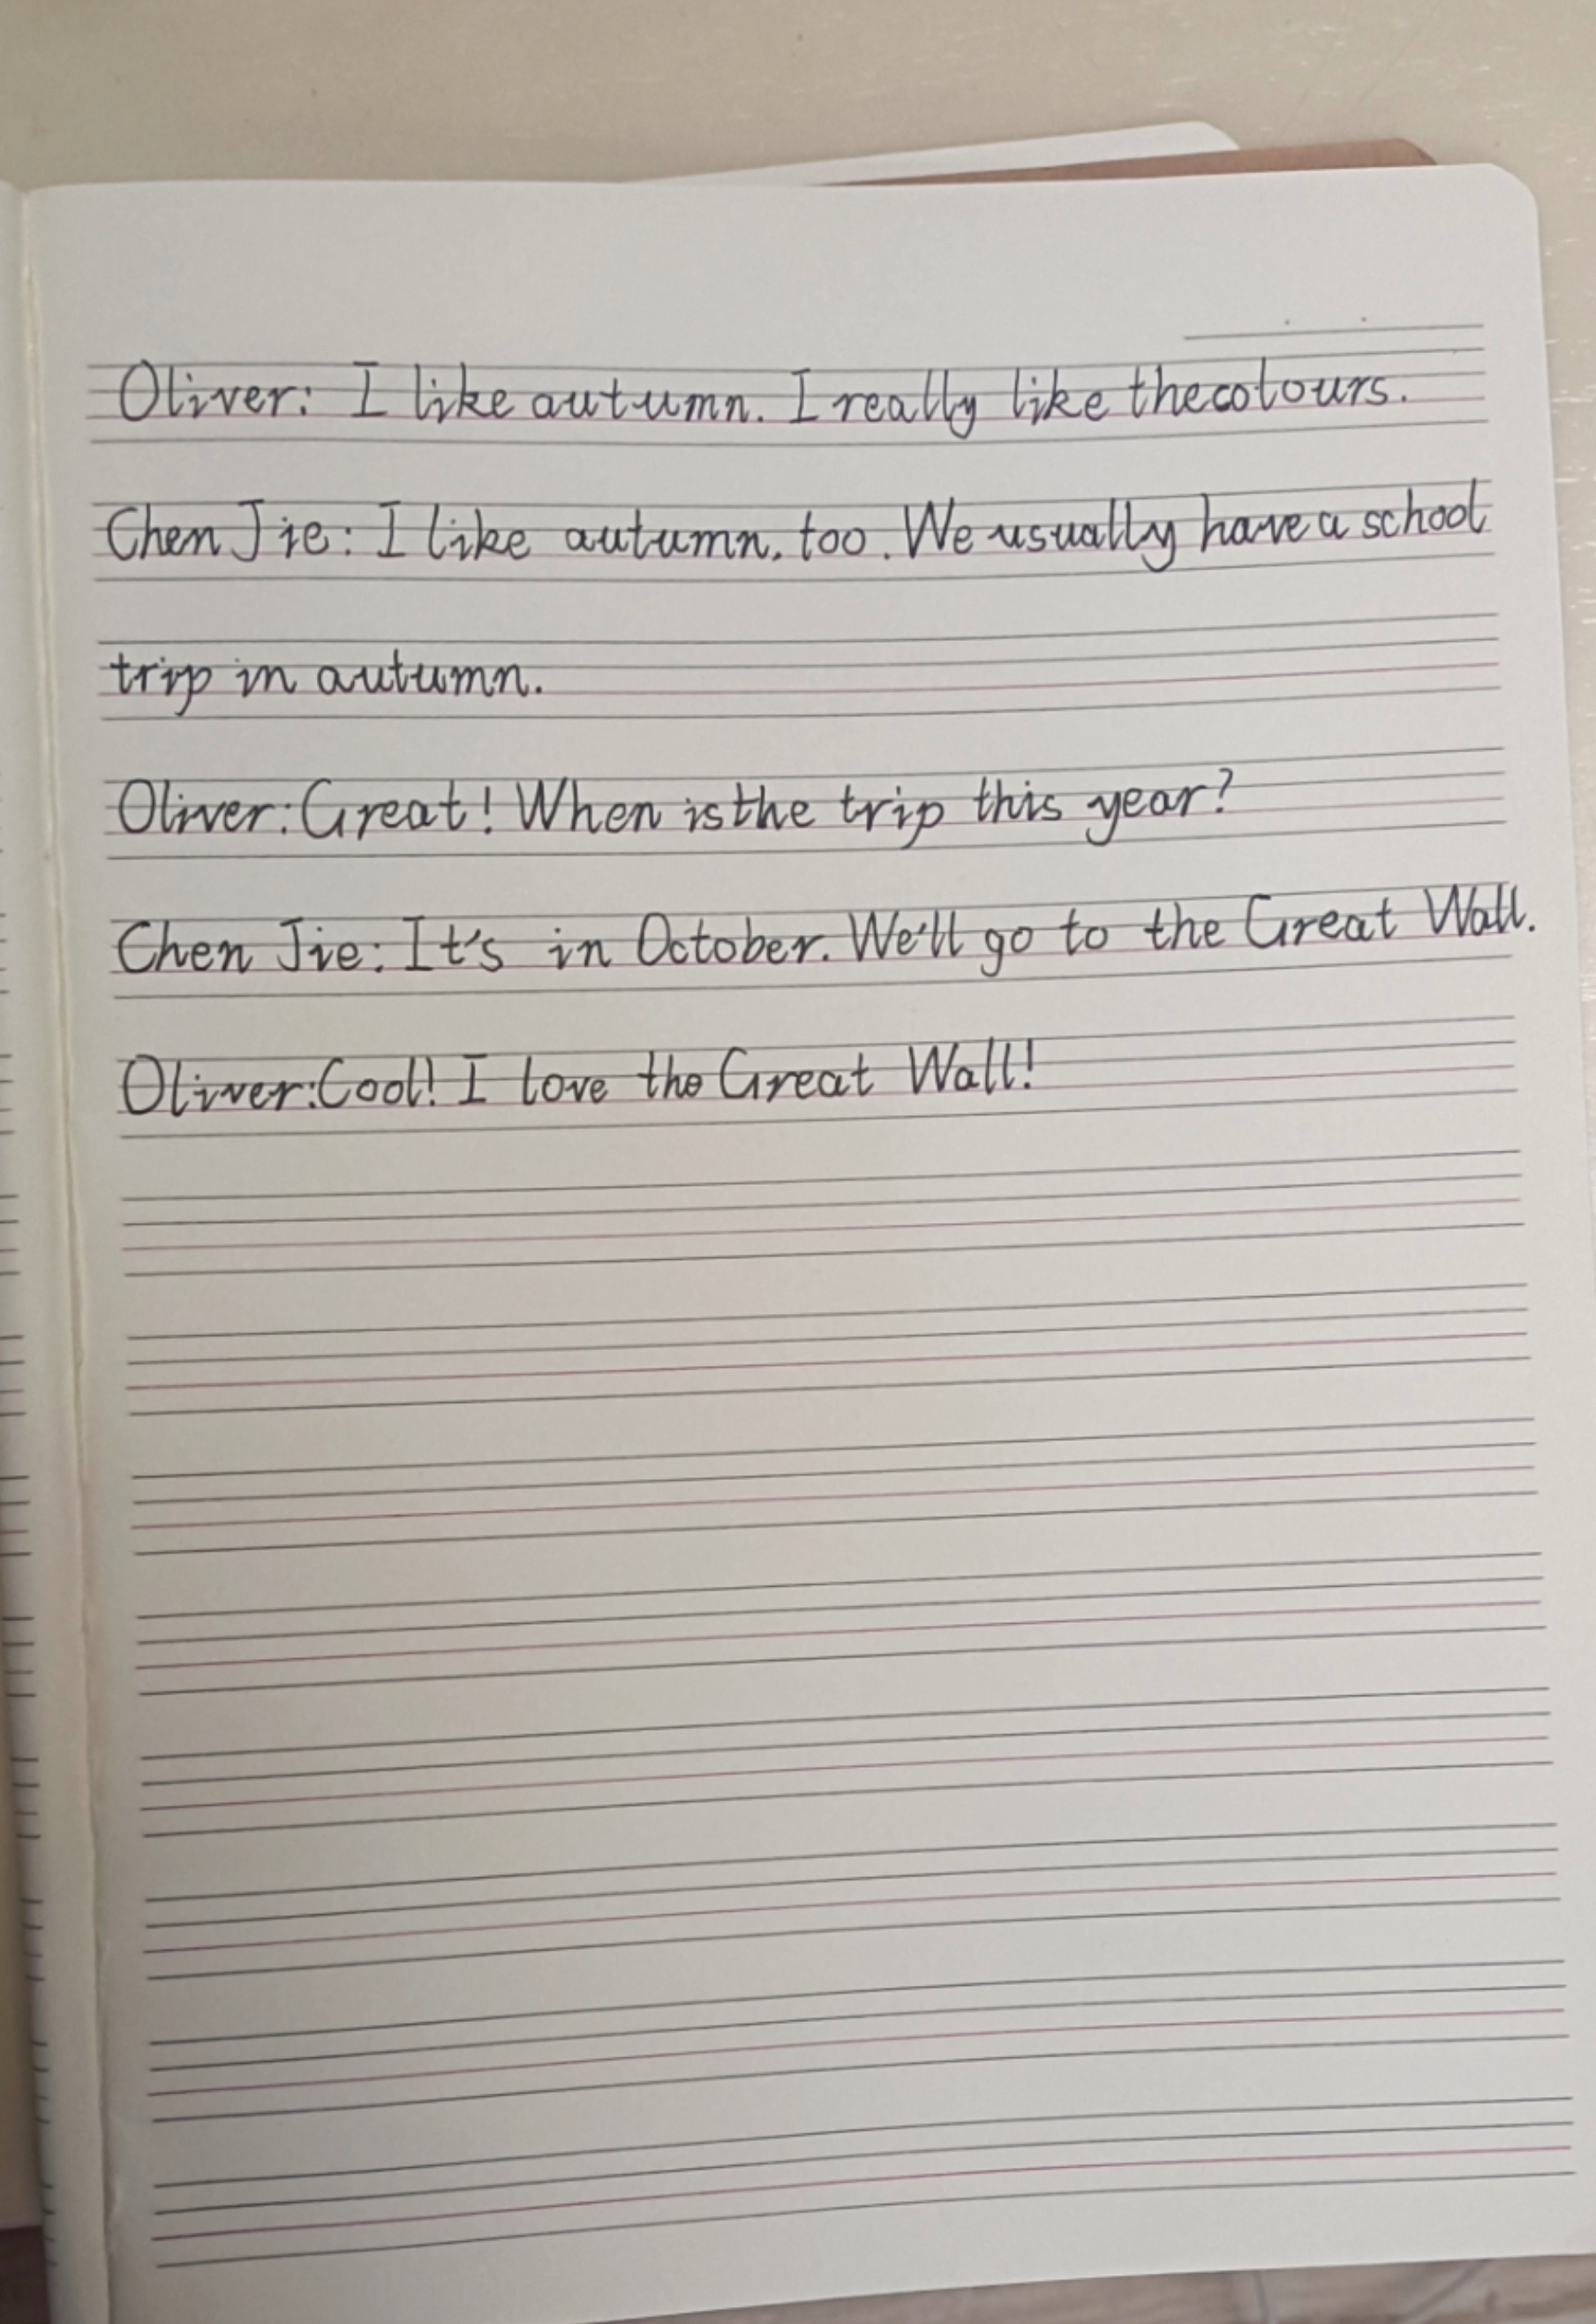 Oliver: I like autumn. I really like the colours.
Chen Jie: I like autumn, too. We usually have a school
trip in autumn.
Oliver: Great! When is the trip this year?
Chen Jie: It's in October. We'll go to the Great Wall.
Oliver: Cool! I love the Great Wall!